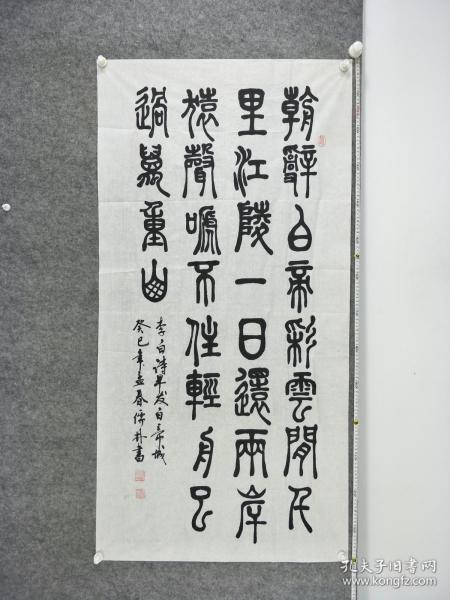 朝辭白帝彩雲間千
里江陵一日還兩岸
猿聲嗁不住輕舟已
過萬重山
李白詩早发白帝城
癸巳年孟春儒書
孔夫子旧书网
www.kongfz.com